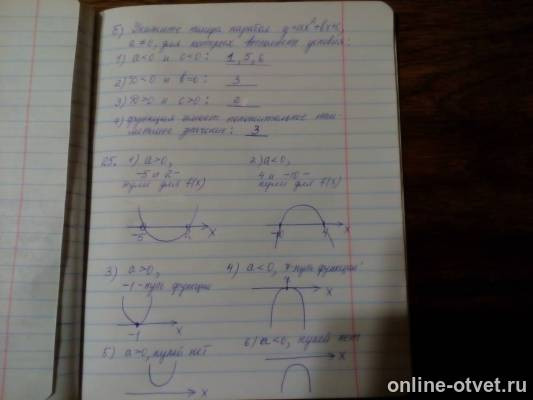 б) Укажите номера парабол y=ax²+bx+c,
a≠0, для которых выполнены условия:
1) a<0 и c<0: 1, 5, 6
2) D<0 и b=0: 3
3) D>0 и c>0: 2
4) функция имеет положительное наи-
меньшее значение: 3
25. 1) a>0,
-5 и 2 -
нули для f(x)
-5 x
2) a<0,
4 и -10 -
нули для f(x)
4 x
3) a>0,
-1 - нуль функции
-1 x
4) a<0, 7-нуль функции
7 x
5) a>0, нулей нет
x
6) a<0, нулей нет
x
online-otvet.ru